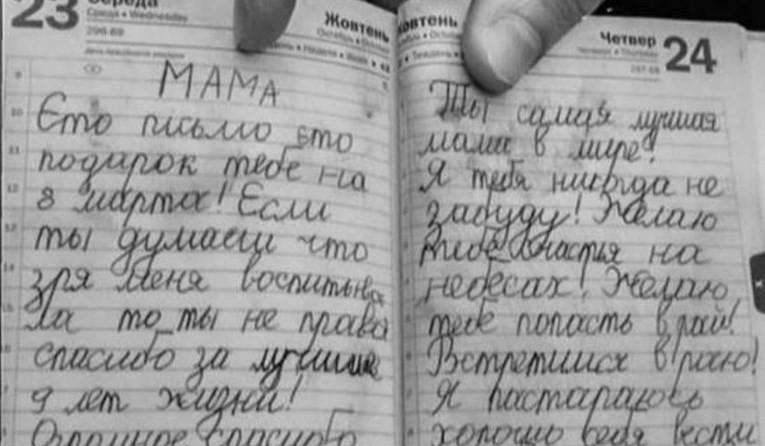 23
Середа
Среда • Wednesday
296-69
Жовтень
МАМА
Єто письмо єто
подарок тебе на
8 марта! Если
ты думаеш что
зря меня воспитыва
ла то ты не права
спасибо за лучшие
9 лет жизни!
Огромное спасибо
Жовтень
Четвер
Четверг • Thursday
297-68
24
Ты самая лучшая
мама в мире!
Я тебя никогда не
забуду! Желаю
тебе счастья на
небесах! Желаю
тебе попасть в рай!
Встретимся в раю!
Я пастараюсь
хорошо себя вести